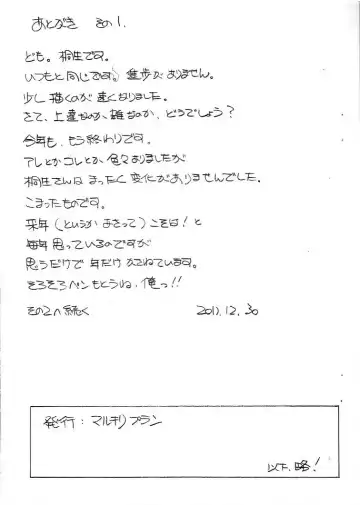 あとがき その1.
ども。桐生です。
いつもと同じです。進歩がありません。
少し描くのが速くなりました。
さて、上達なのか、雑なのか、どうでしょう?
今年も、もう終わりです。
アレとかコレとか、色々ありましたが
桐生さんは まったく変化がありませんでした。
こまったものです。
来年(というかあさって)こそは!と
毎年思っているのですが
思うだけで 年だけ かさねています。
そろそろペンもとうね、俺っ!!
その2へ続く 2011.12.30
発行:マルチプラン
以下、略!